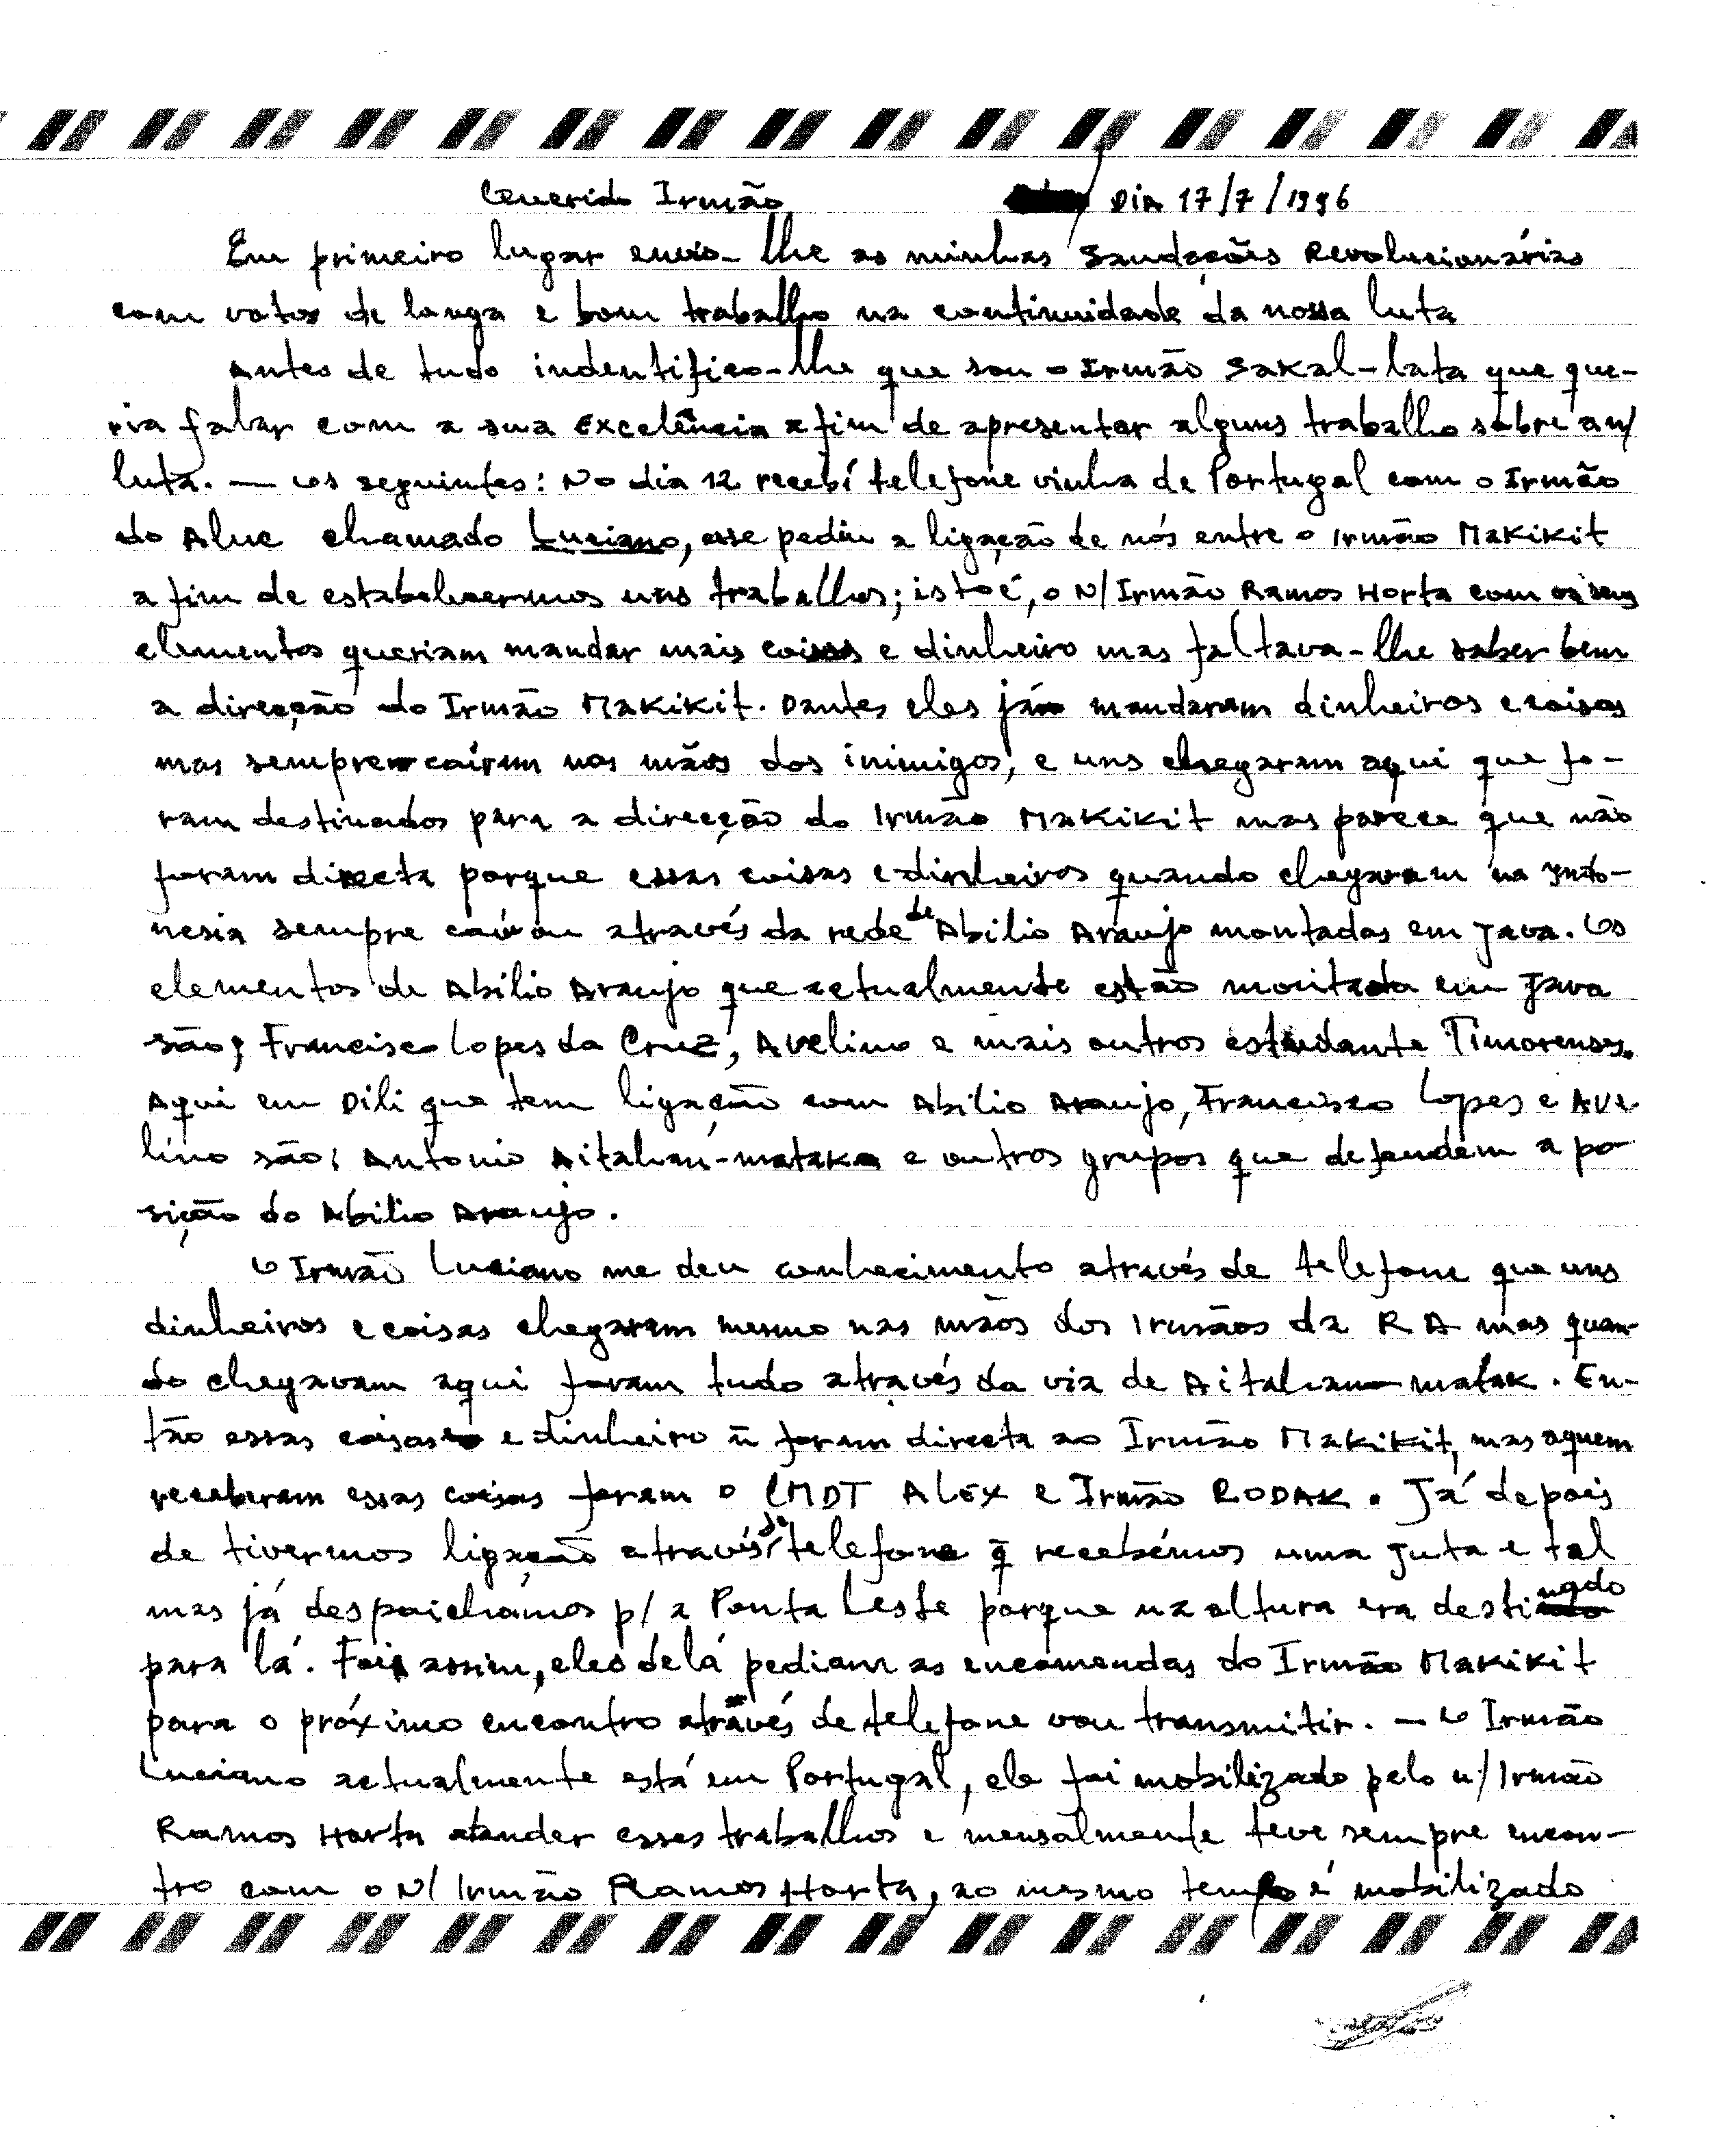 Querido Irmão DIA 17/7/1996
Em primeiro lugar envio-lhe as minhas Saudações Revolucionárias
com votos de longa e bom trabalho na continuidade da nossa luta
Antes de tudo indentifico-lhe que sou o Irmão Sakal-lata que que-
ria falar com a sua Excelência a fim de apresentar alguns trabalho sobre a n/
luta. — Os seguintes: No dia 12 recebí telefone vinha de Portugal com o Irmão
do Alue chamado Luciano, esse pediu a ligação de nós entre o Irmão Makikit
a fim de estabelecermos uns trabalhos; isto é, o N/ Irmão Ramos Horta com os seus
elementos queriam mandar mais coisas e dinheiro mas faltava-lhe saber bem
a direcção do Irmão Makikit. Dantes eles já mandaram dinheiros e coisas
mas sempre caíram nas mãos dos inimigos, e uns chegaram aqui que fo-
ram destinados para a direcção do Irmão Makikit mas parece que não
foram directa porque essas coisas e dinheiros quando chegaram na Indo-
nesia sempre caíram através da rede de Abilio Araujo montadas em Java. Os
elementos de Abilio Araujo que actualmente estão montada em Java
são; Francisco Lopes da Cruz, Avelino e mais outros estudante Timorenses.
Aqui em Dili que tem ligação com Abilio Araujo, Francisco Lopes e Ave
lino são; Antonio Aitahan-matak e outros grupos que defendem a po
sição do Abilio Araujo.
O Irmão Luciano me deu conhecimento através de telefone que uns
dinheiros e coisas chegaram mesmo nas mãos dos Irmãos da RA mas quan-
do chegavam aqui foram tudo através da via de Aitahan-matak. En-
tão essas coisas e dinheiro ñ foram directa ao Irmão Makikit, mas aquem
receberam essas coisas foram o CMDT ALEX e Irmão RODAK. Já depois
de tivermos ligação através de telefone q̃ recebémos uma juta e tal
mas já despaichámos p/ a Ponta Leste porque na altura era destinado
para lá. Foi assim, eles de lá pediam as encomendas do Irmão Makikit
para o próximo encontro através de telefone vou transmitir. — O Irmão
Luciano actualmente está em Portugal, ele foi mobilizado pelo n/ Irmão
Ramos Horta atender esses trabalhos e mensalmente teve sempre encon-
tro com o N/ Irmão Ramos Horta, ao mesmo tempo é mobilizado